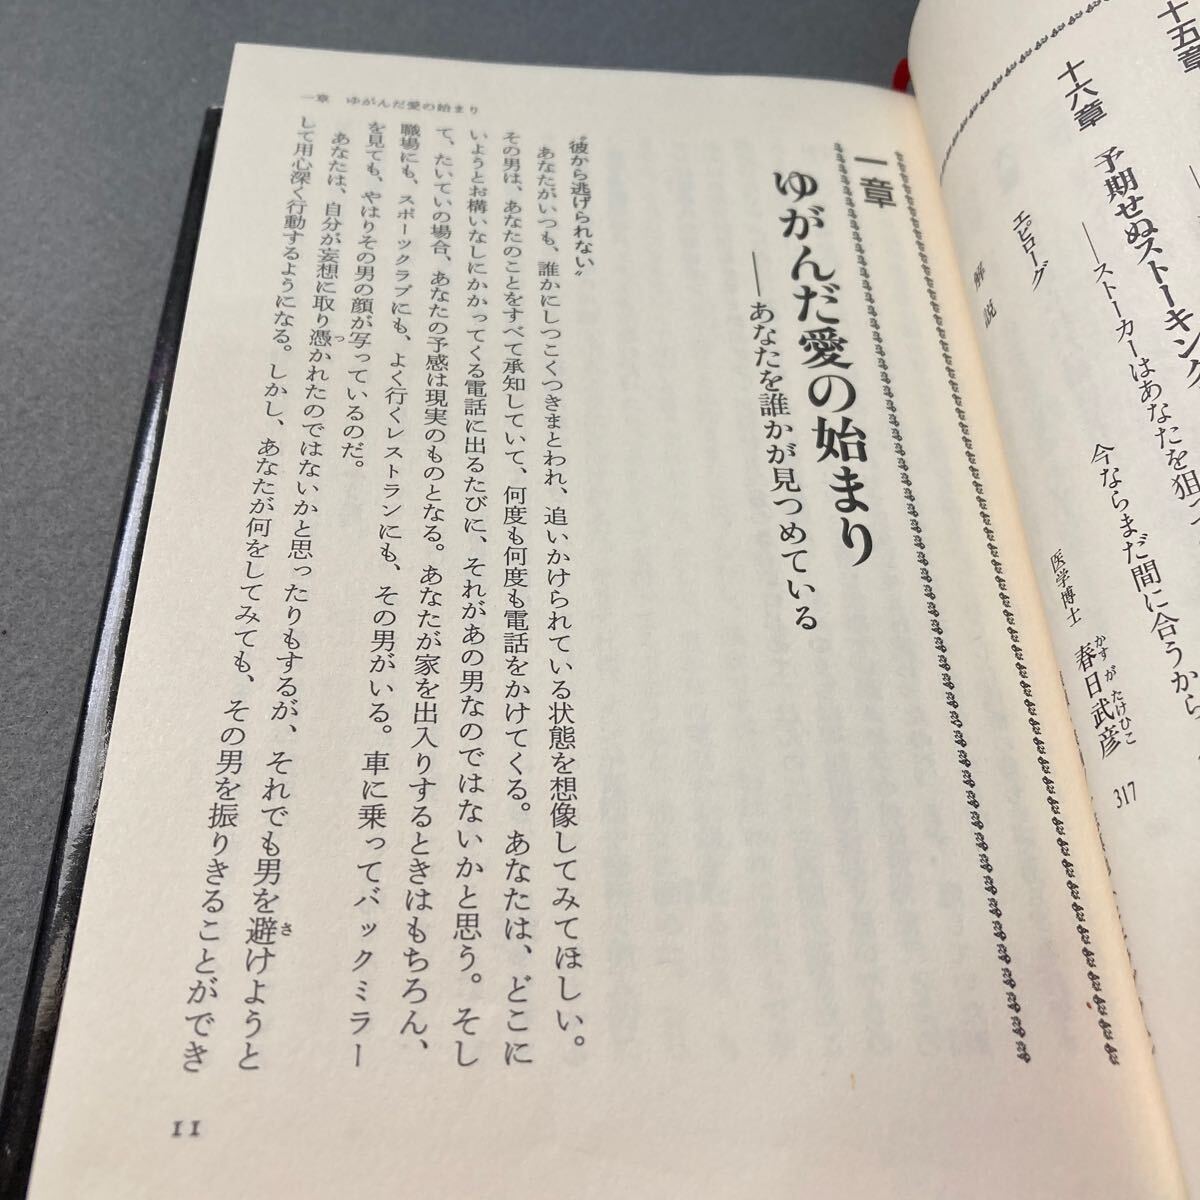 十五章
十六章 予期せぬストーキング
――ストーカーはあなたを狙っ
今ならまだ間に合うから
エピローグ
解説
医学博士 春日武彦 317
かすが たけひこ
一章
ゆがんだ愛の始まり
――あなたを誰かが見つめている
〝彼から逃げられない〟
あなたがいつも、誰かにしつこくつきまとわれ、追いかけられている状態を想像してみてほしい。
その男は、あなたのことをすべて承知していて、何度も何度も電話をかけてくる。あなたは、どこに
いようとお構いなしにかかってくる電話に出るたびに、それがあの男なのではないかと思う。そし
て、たいていの場合、あなたの予感は現実のものとなる。あなたが家を出入りするときはもちろん、
職場にも、スポーツクラブにも、よく行くレストランにも、その男がいる。車に乗ってバックミラー
を見ても、やはりその男の顔が写っているのだ。
あなたは、自分が妄想に取り憑かれたのではないかと思ったりもするが、それでも男を避けようと
つ
さ
して用心深く行動するようになる。しかし、あなたが何をしてみても、その男を振りきることができ
一章 ゆがんだ愛の始まり
11